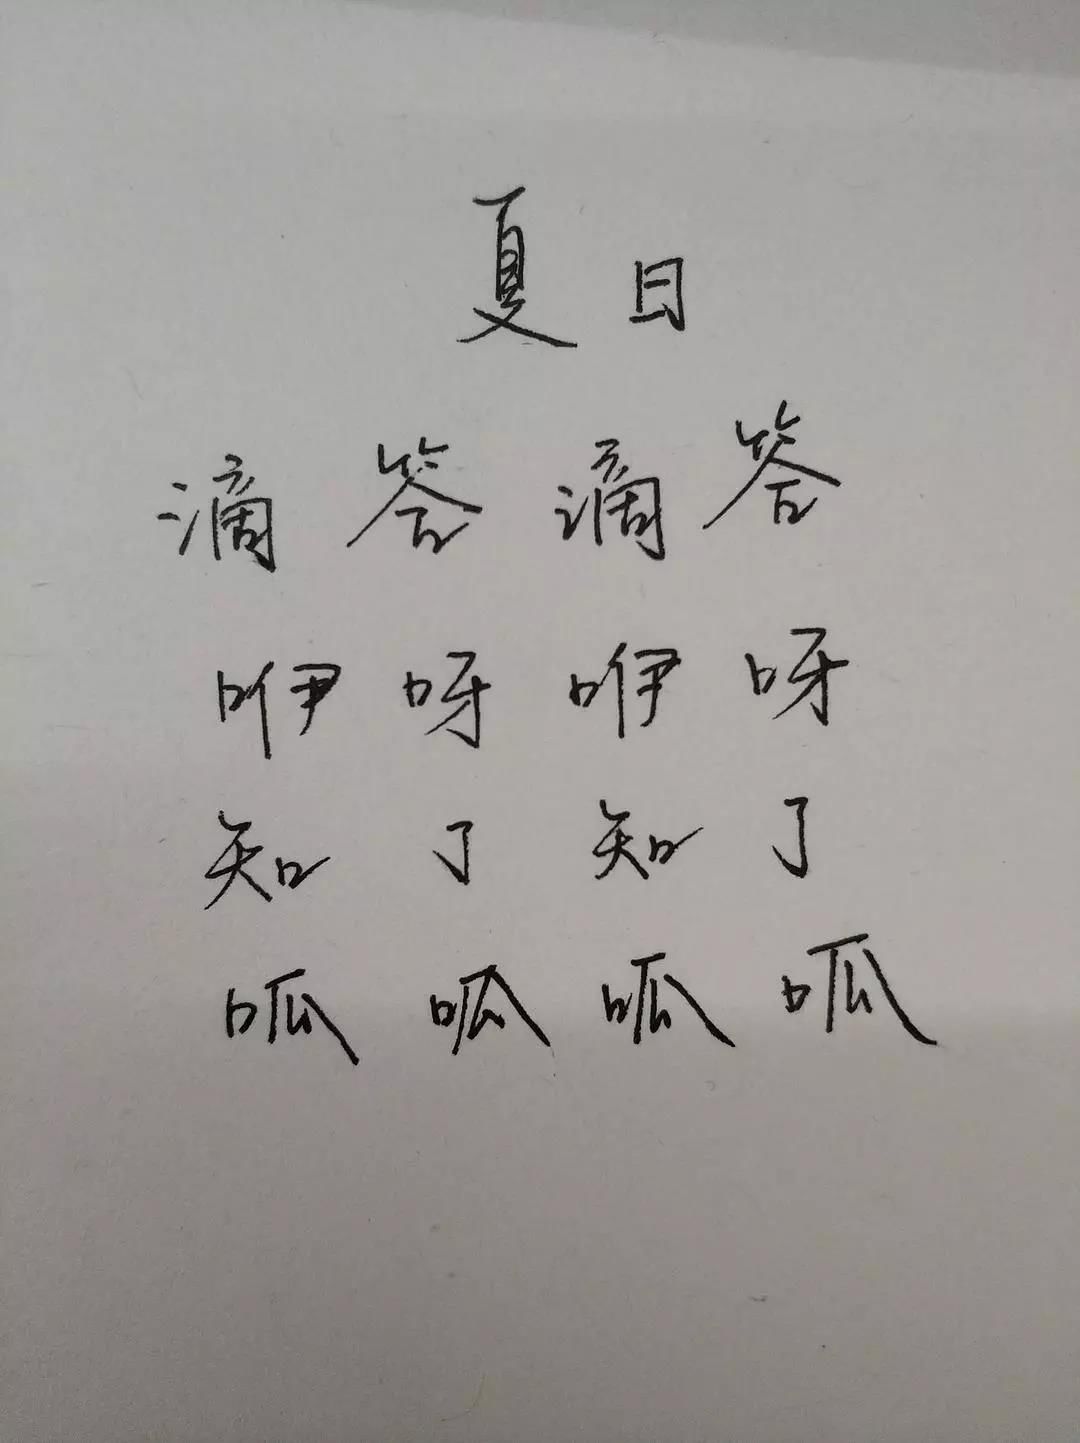 夏日
滴答滴答
咿呀咿呀
知了知了
呱呱呱呱